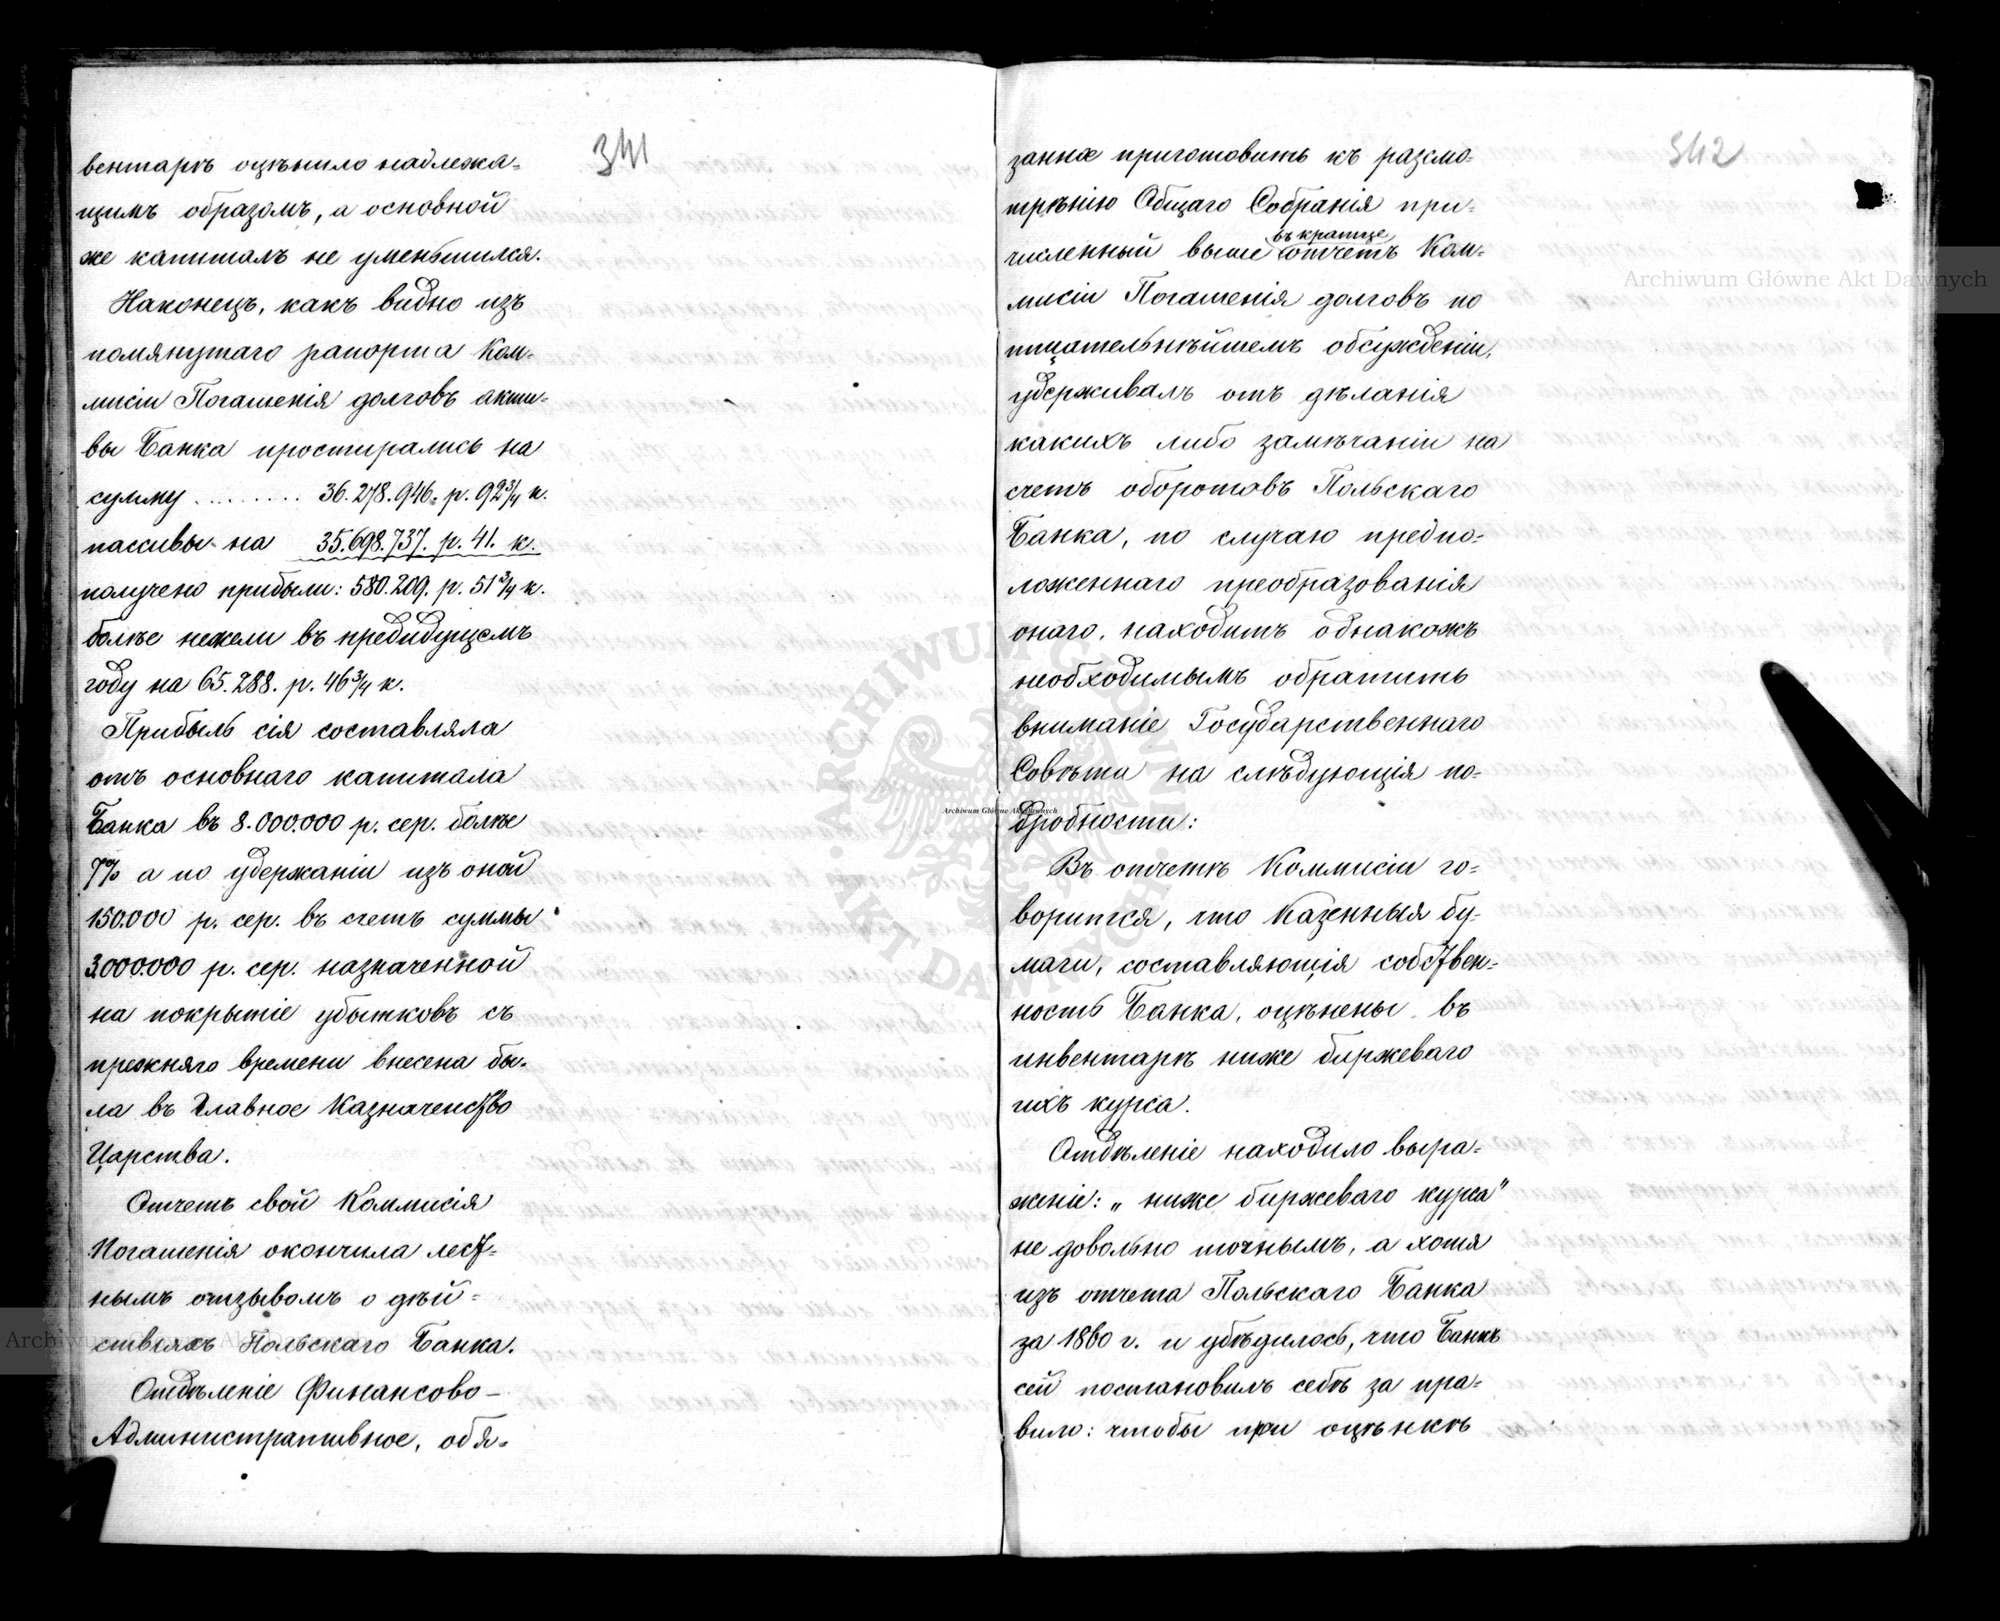 341
вентарѣ оцѣнило надлежа-
щимъ образомъ, а основной
же капиталъ не уменьшился.
Наконецъ, какъ видно изъ
помянутаго рапорта Ком-
мисіи Погашенія долговъ акти-
вы Банка простирались на
сумму ......... 36.278.946. р. 92¾ к.
пассивы на 35.698.737. р. 41. к.
получено прибыли: 580.209. р. 51¾ к.
болѣе нежели въ предидущемъ
году на 65.288. р. 46¾ к.
Прибыль сія составляла
отъ основнаго капитала
Банка въ 8.000.000 р. сер. болѣе
7% а по удержаніи изъ оной
150.000 р. сер. въ счетъ суммы
3.000.000 р. сер. назначенной
на покрытіе убытковъ съ
прежняго времени внесена бы-
ла въ Главное Казначейство
Царства.
Отчетъ свой Коммисія
Погашенія окончила лест-
нымъ отзывомъ о дѣй-
ствіяхъ Польскаго Банка.
Отдѣленіе Финансово-
Административное, обя-
342
занное приготовить къ разсмо-
трѣнію Общаго Собранія при-
въ кратце
численный выше отчетъ Ком-
мисіи Погашенія долговъ по
тщательнѣйшемъ обсужденіи,
удерживалъ отъ дѣланія
какихъ либо замѣчаніи на
счетъ оборотовъ Польскаго
Банка, по случаю предпо-
ложеннаго преобразованія
онаго, находитъ однакожъ
необходимымъ обратить
вниманіе Государственнаго
Совѣта на слѣдующія по-
дробности:
Въ отчетѣ Коммисіи го-
ворится, что Казенныя бу-
маги, составляющія собствен-
ность Банка, оцѣнены въ
инвентарѣ ниже биржеваго
ихъ курса.
Отдѣленіе находило выра-
женіе: „ниже биржеваго курса"
не довольно точнымъ, а хотя
изъ отчета Польскаго Банка
за 1860 г. и убѣдилось, что Банкъ
сей постановилъ себѣ за пра-
вило: чтобы при оцѣнкѣ
Archiwum Główne Akt Dawnych
Archiwum Główne Akt Dawnych
Archiwum Główne Akt Dawnych